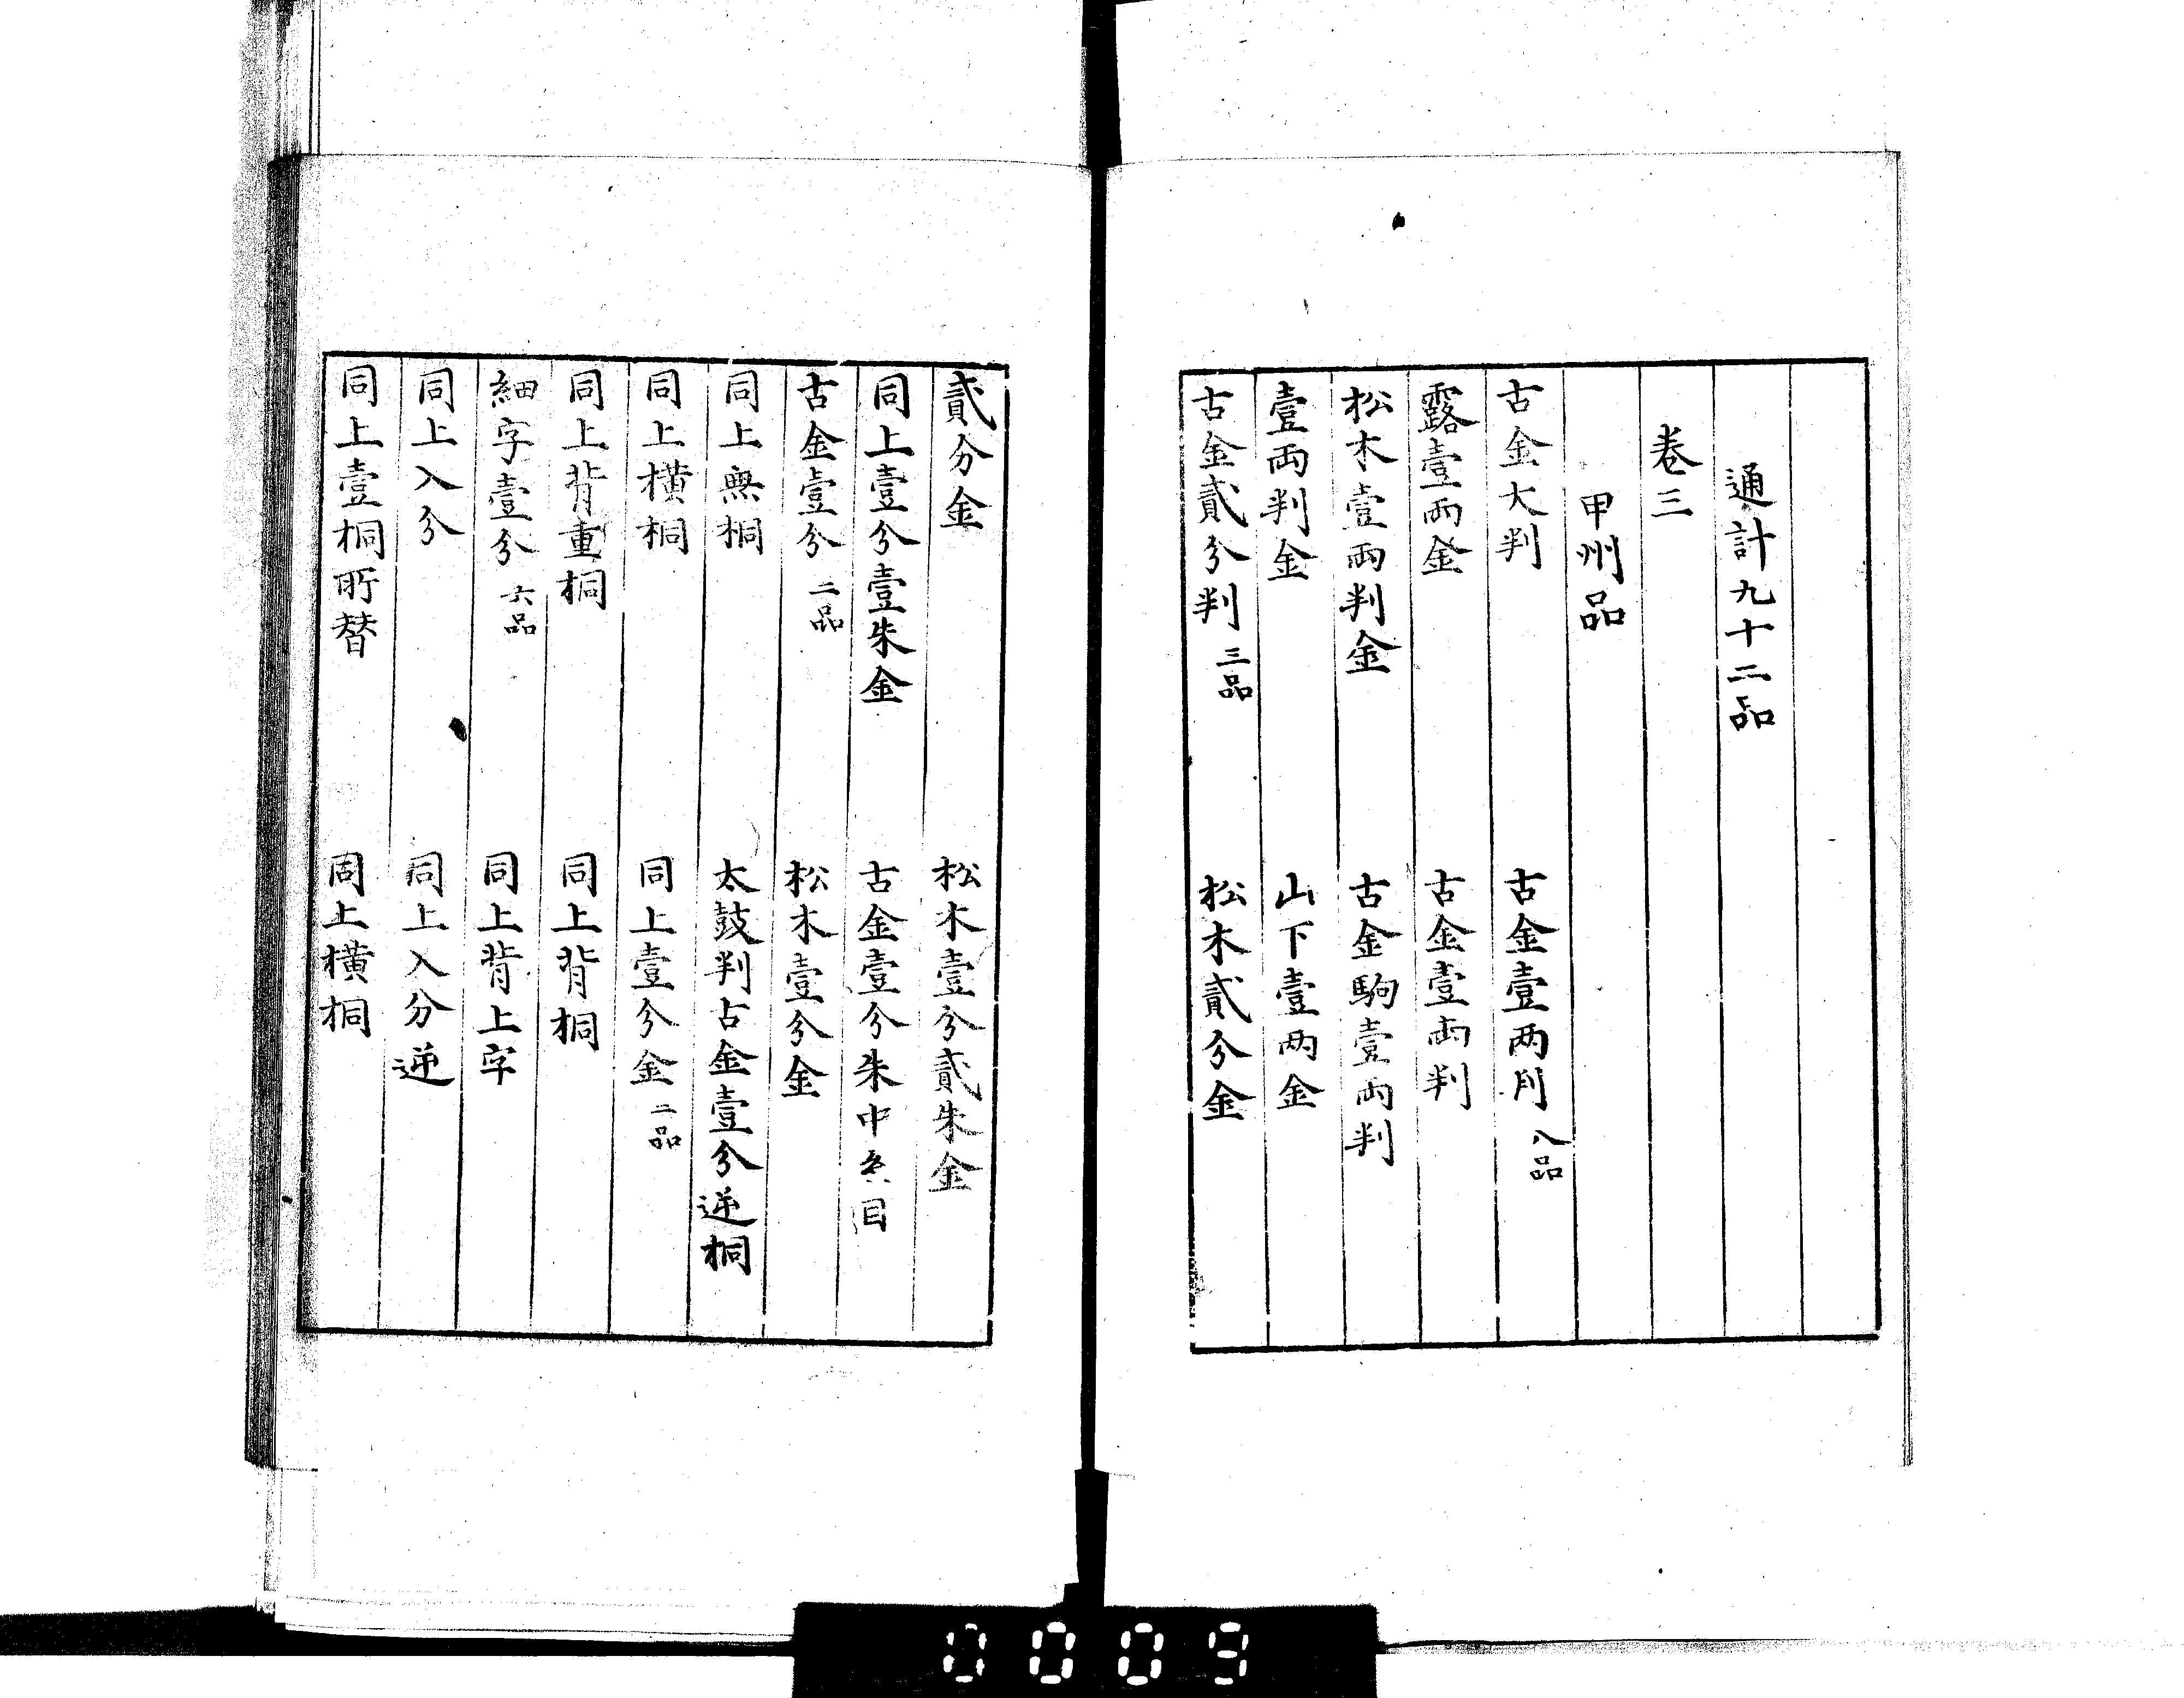 通計九十二品
卷三
甲州品
古金大判　古金壹两判 八品
露壹兩金　古金壹兩判
松木壹兩判金　古金駒壹兩判
壹兩判金　山下壹两金
古金貳分判 三品　松木貳分金
貳分金　松木壹分貳朱金
同上壹分壹朱金　古金壹分朱中糸目
古金壹分 二品　松木壹分金
同上無桐　太鼓判古金壹分逆桐
同上橫桐　同上壹分金 二品
同上背重桐　同上背桐
細字壹分 六品　同上背上字
同上入分　同上入分逆
同上壹桐所替　同上橫桐
0009